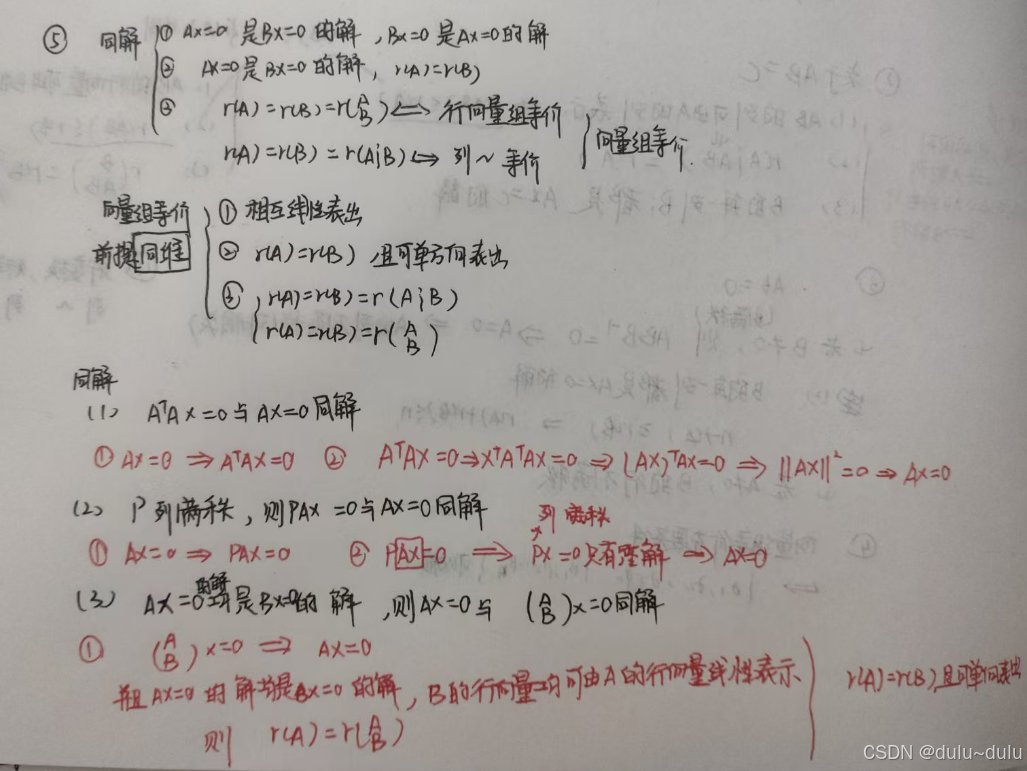 ⑤ 同解 ① Ax=0 是Bx=0 的解，Bx=0 是Ax=0的解
② Ax=0是Bx=0 的解，r(A)=r(B)
③ r(A)=r(B)=r(A B) ⟺ 行向量组等价
r(A)=r(B)=r(A¦B) ⟺ 列~等价
向量组等价.
向量组等价 ① 相互线性表出
前提同维 ② r(A)=r(B) 且可单方向表出
③ r(A)=r(B)=r(A¦B)
r(A)=r(B)=r(A B)
同解
(1) AᵀAx=0与Ax=0同解
① Ax=0 ⇒ AᵀAx=0 ② AᵀAx=0⇒xᵀAᵀAx=0 ⇒ (Ax)ᵀAx=0 ⇒ ||Ax||²=0 ⇒ Ax=0
(2) P列满秩，则PAx=0与Ax=0同解
列满秩
① Ax=0 ⇒ PAx=0 ② PAx=0 ⇒ Px=0只有零解 ⇒ Ax=0
(3) Ax=0的解均是Bx=0的解，则Ax=0与 (A B)x=0同解
① (A B)x=0 ⇒ Ax=0
且Ax=0的解均是Bx=0的解，B的行向量均可由A的行向量线性表示
则 r(A)=r(A B)
r(A)=r(B)且可单向表出
CSDN @dulu~dulu